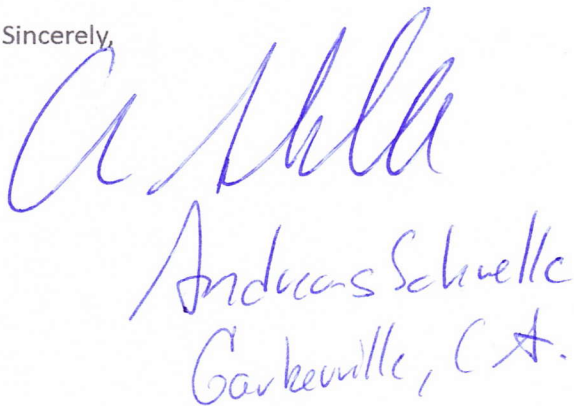 Sincerely,
Andreas Schnelle
Garberville, C A.